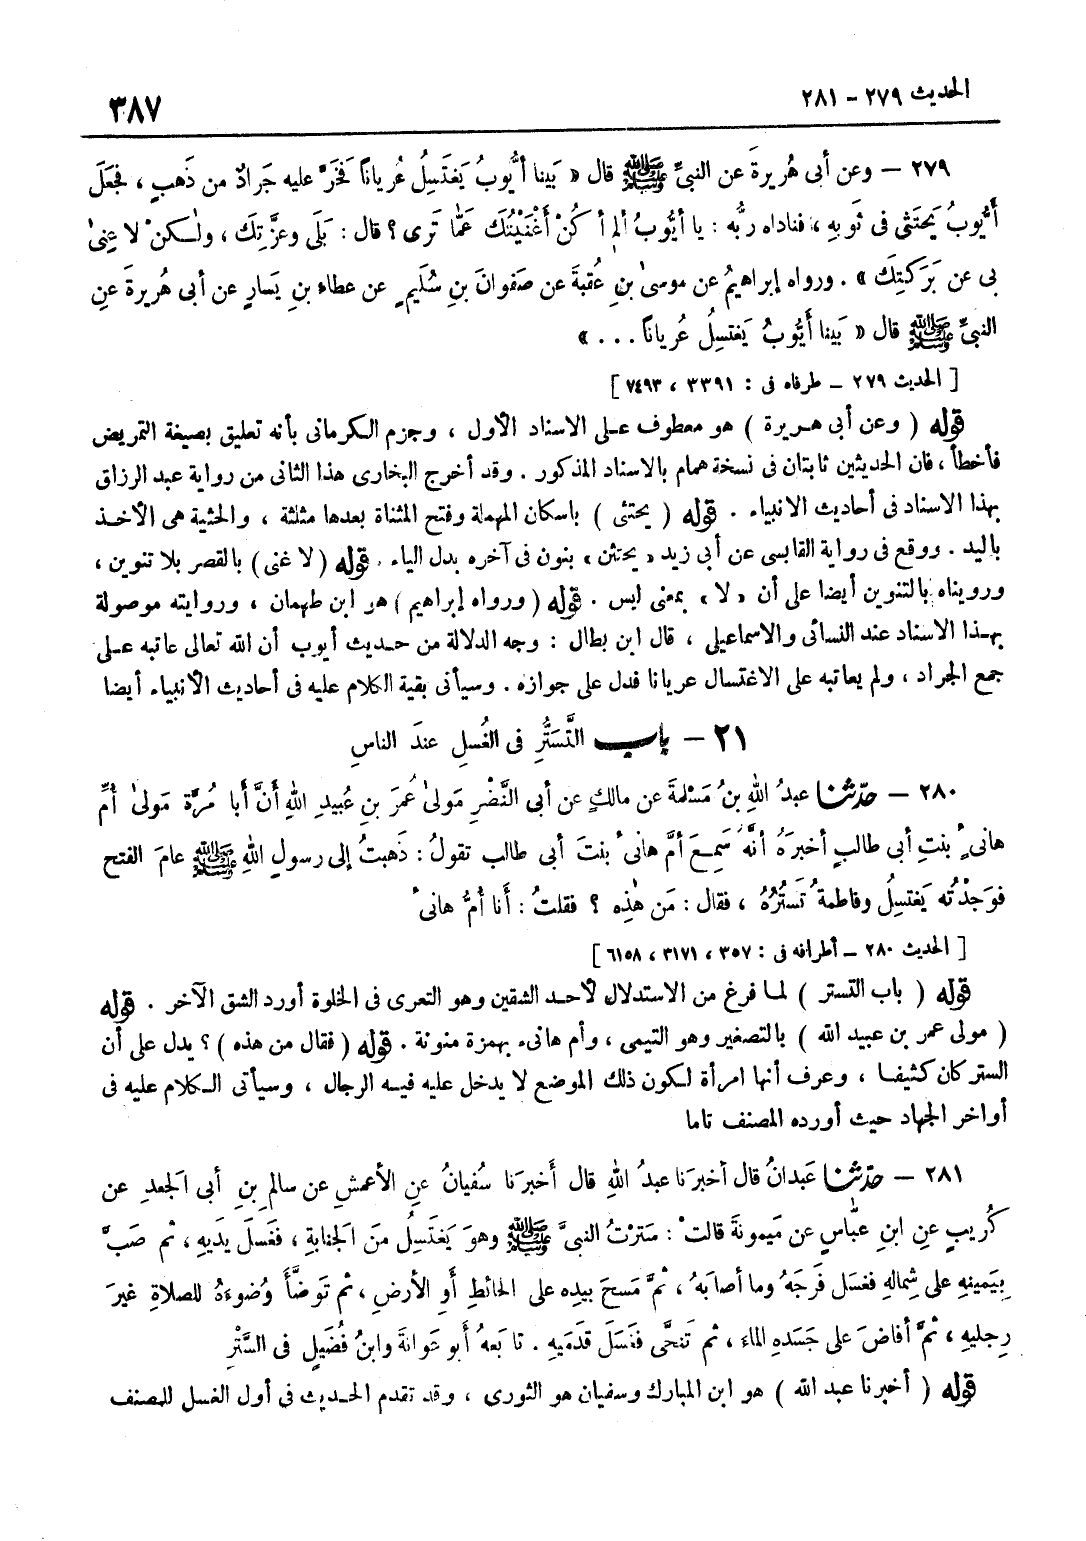 الحديث ٢٧٩ - ٢٨١
٣٨٧
٢٧٩ - وعن أبى هُريرةَ عن النبىِّ ﷺ قال « بَينا أيُّوبُ يَغتَسِلُ عُرياناً فخَرَّ عليه جَرادٌ من ذَهبٍ ، فجعَلَ
أيُّوبُ يَحتَثى فى ثَوبهِ ، فناداه ربُّه : يا أيّوبُ ألم أكُنْ أغْنَيْتُكَ عمّا تَرى ؟ قال : بَلَى وعزَّتِكَ ، ولٰكنْ لا غِنىٰ
بى عن بَرَكتِكَ » . ورواه إبراهيمُ عن موسىٰ بنِ عُقبةَ عن صَفوانَ بنِ سُليمٍ عن عطاءِ بنِ يَسارٍ عن أبى هُريرةَ عنِ
النبىِّ ﷺ قال « بَينا أيُّوبُ يَغتسِلُ عُرياناً . . . »
[ الحديث ٢٧٩ - طرفاه فى : ٣٣٩١ ، ٧٤٩٣ ]
قوله ( وعن أبى هريرة ) هو معطوف على الاسناد الأول ، وجزم الكرمانى بأنه تعليق بصيغة التمريض
فأخطأ ، فان الحديثين ثابتان فى نسخة همام بالاسناد المذكور . وقد أخرج البخارى هذا الثانى من رواية عبد الرزاق
بهذا الاسناد فى أحاديث الانبياء . قوله ( يحتثى ) باسكان المهملة وفتح المثناة بعدها مثلثة ، والحثية هى الأخذ
باليد . ووقع فى رواية القابسى عن أبى زيد « يحتثن » بنون فى آخره بدل الياء . قوله ( لا غنى ) بالقصر بلا تنوين ،
ورويناه بالتنوين أيضا على أن « لا » بمعنى ليس . قوله ( ورواه إبراهيم ) هو ابن طهمان ، وروايته موصولة
بهذا الاسناد عند النسائى والاسماعيلى ، قال ابن بطال : وجه الدلالة من حديث أيوب أن الله تعالى عاتبه على
جمع الجراد ، ولم يعاتبه على الاغتسال عريانا فدل على جوازه . وسيأتى بقية الكلام عليه فى أحاديث الأنبياء أيضا
٢١ - باب التَّستُّرِ فى الغُسلِ عندَ الناسِ
٢٨٠ - حدّثنا عبدُ اللهِ بنُ مَسْلمةَ عن مالكٍ عن أبى النَّضْرِ مَولىٰ عُمرَ بنِ عُبيدِ اللهِ أنَّ أبا مُرَّةَ مَولىٰ أمِّ
هانىءٍ بنتِ أبى طالبٍ أخبرَهُ أنَّهُ سَمِعَ أمَّ هانىءٍ بنتَ أبى طالب تقولُ : ذَهبتُ إلى رسولِ اللهِ ﷺ عامَ الفتح
فوَجَدْتُه يَغتسِلُ وفاطمةُ تَستُرُهُ ، فقال : مَن هٰذِه ؟ فقلتُ : أنا أمُّ هانىءٍ
[ الحديث ٢٨٠ - أطرافه فى : ٣٥٧ ، ٣١٧١ ، ٦١٥٨ ]
قوله ( باب التستر ) لما فرغ من الاستدلال لأحد الشقين وهو التعرى فى الخلوة أورد الشق الآخر . قوله
( مولى عمر بن عبيد الله ) بالتصغير وهو التيمى ، وأم هانىء بهمزة منونة . قوله ( فقال من هذه ) ؟ يدل على أن
الستر كان كثيفا ، وعرف أنها امرأة لكون ذلك الموضع لا يدخل عليه فيه الرجال ، وسيأتى الكلام عليه فى
أواخر الجهاد حيث أورده المصنف تاما
٢٨١ - حدّثنا عَبدانُ قال أخبرَنا عبدُ اللهِ قال أَخبرَنا سُفيانُ عنِ الأعمشِ عن سالمِ بنِ أبى الجعدِ عن
كُريبٍ عنِ ابنِ عبّاسٍ عن مَيمونةَ قالتْ : سَترْتُ النبىَّ ﷺ وهوَ يَغتَسِلُ منَ الجَنابةِ ، فغَسلَ يَديهِ ، ثم صَبَّ
بِيَمينهِ على شِمالهِ فغَسلَ فَرجَهُ وما أصابَهُ ، ثمَّ مَسحَ بيدِه على الحائطِ أوِ الأرضِ ، ثم تَوضَّأَ وُضوءَهُ للصلاةِ غيرَ
رِجليهِ ، ثمَّ أفاضَ على جَسَدهِ الماء ، ثم تَنحَّى فغَسَلَ قدَمَيهِ . تابعهُ أبو عَوانةَ وابنُ فُضَيلٍ فى السَّتْرِ
قوله ( أخبرنا عبد الله ) هو ابن المبارك وسفيان هو الثورى ، وقد تقدم الحديث فى أول الغسل للمصنف